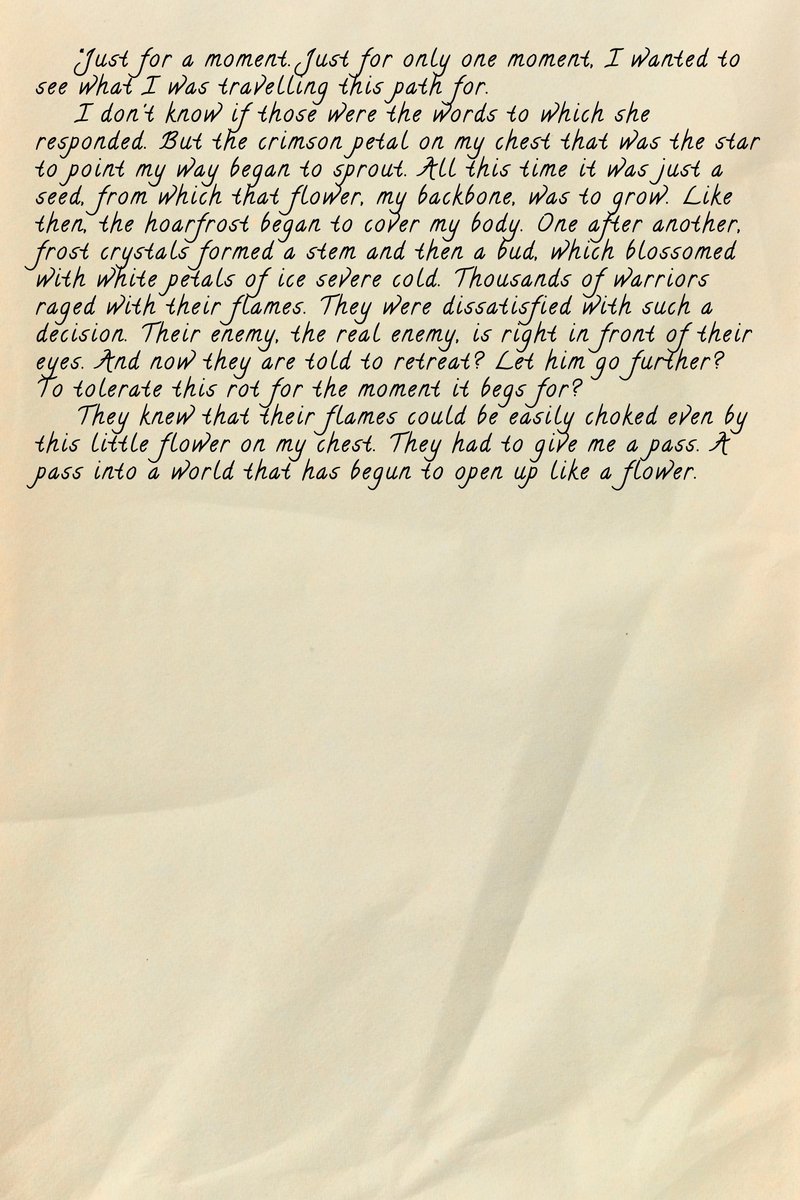 "Just for a moment. Just for only one moment, I wanted to
see what I was travelling this path for.
I don't know if those were the words to which she
responded. But the crimson petal on my chest that was the star
to point my way began to sprout. All this time it was just a
seed, from which that flower, my backbone, was to grow. Like
then, the hoarfrost began to cover my body. One after another,
frost crystals formed a stem and then a bud, which blossomed
with white petals of ice severe cold. Thousands of warriors
raged with their flames. They were dissatisfied with such a
decision. Their enemy, the real enemy, is right in front of their
eyes. And now they are told to retreat? Let him go further?
To tolerate this rot for the moment it begs for?
They knew that their flames could be easily choked even by
this little flower on my chest. They had to give me a pass. A
pass into a world that has begun to open up like a flower.